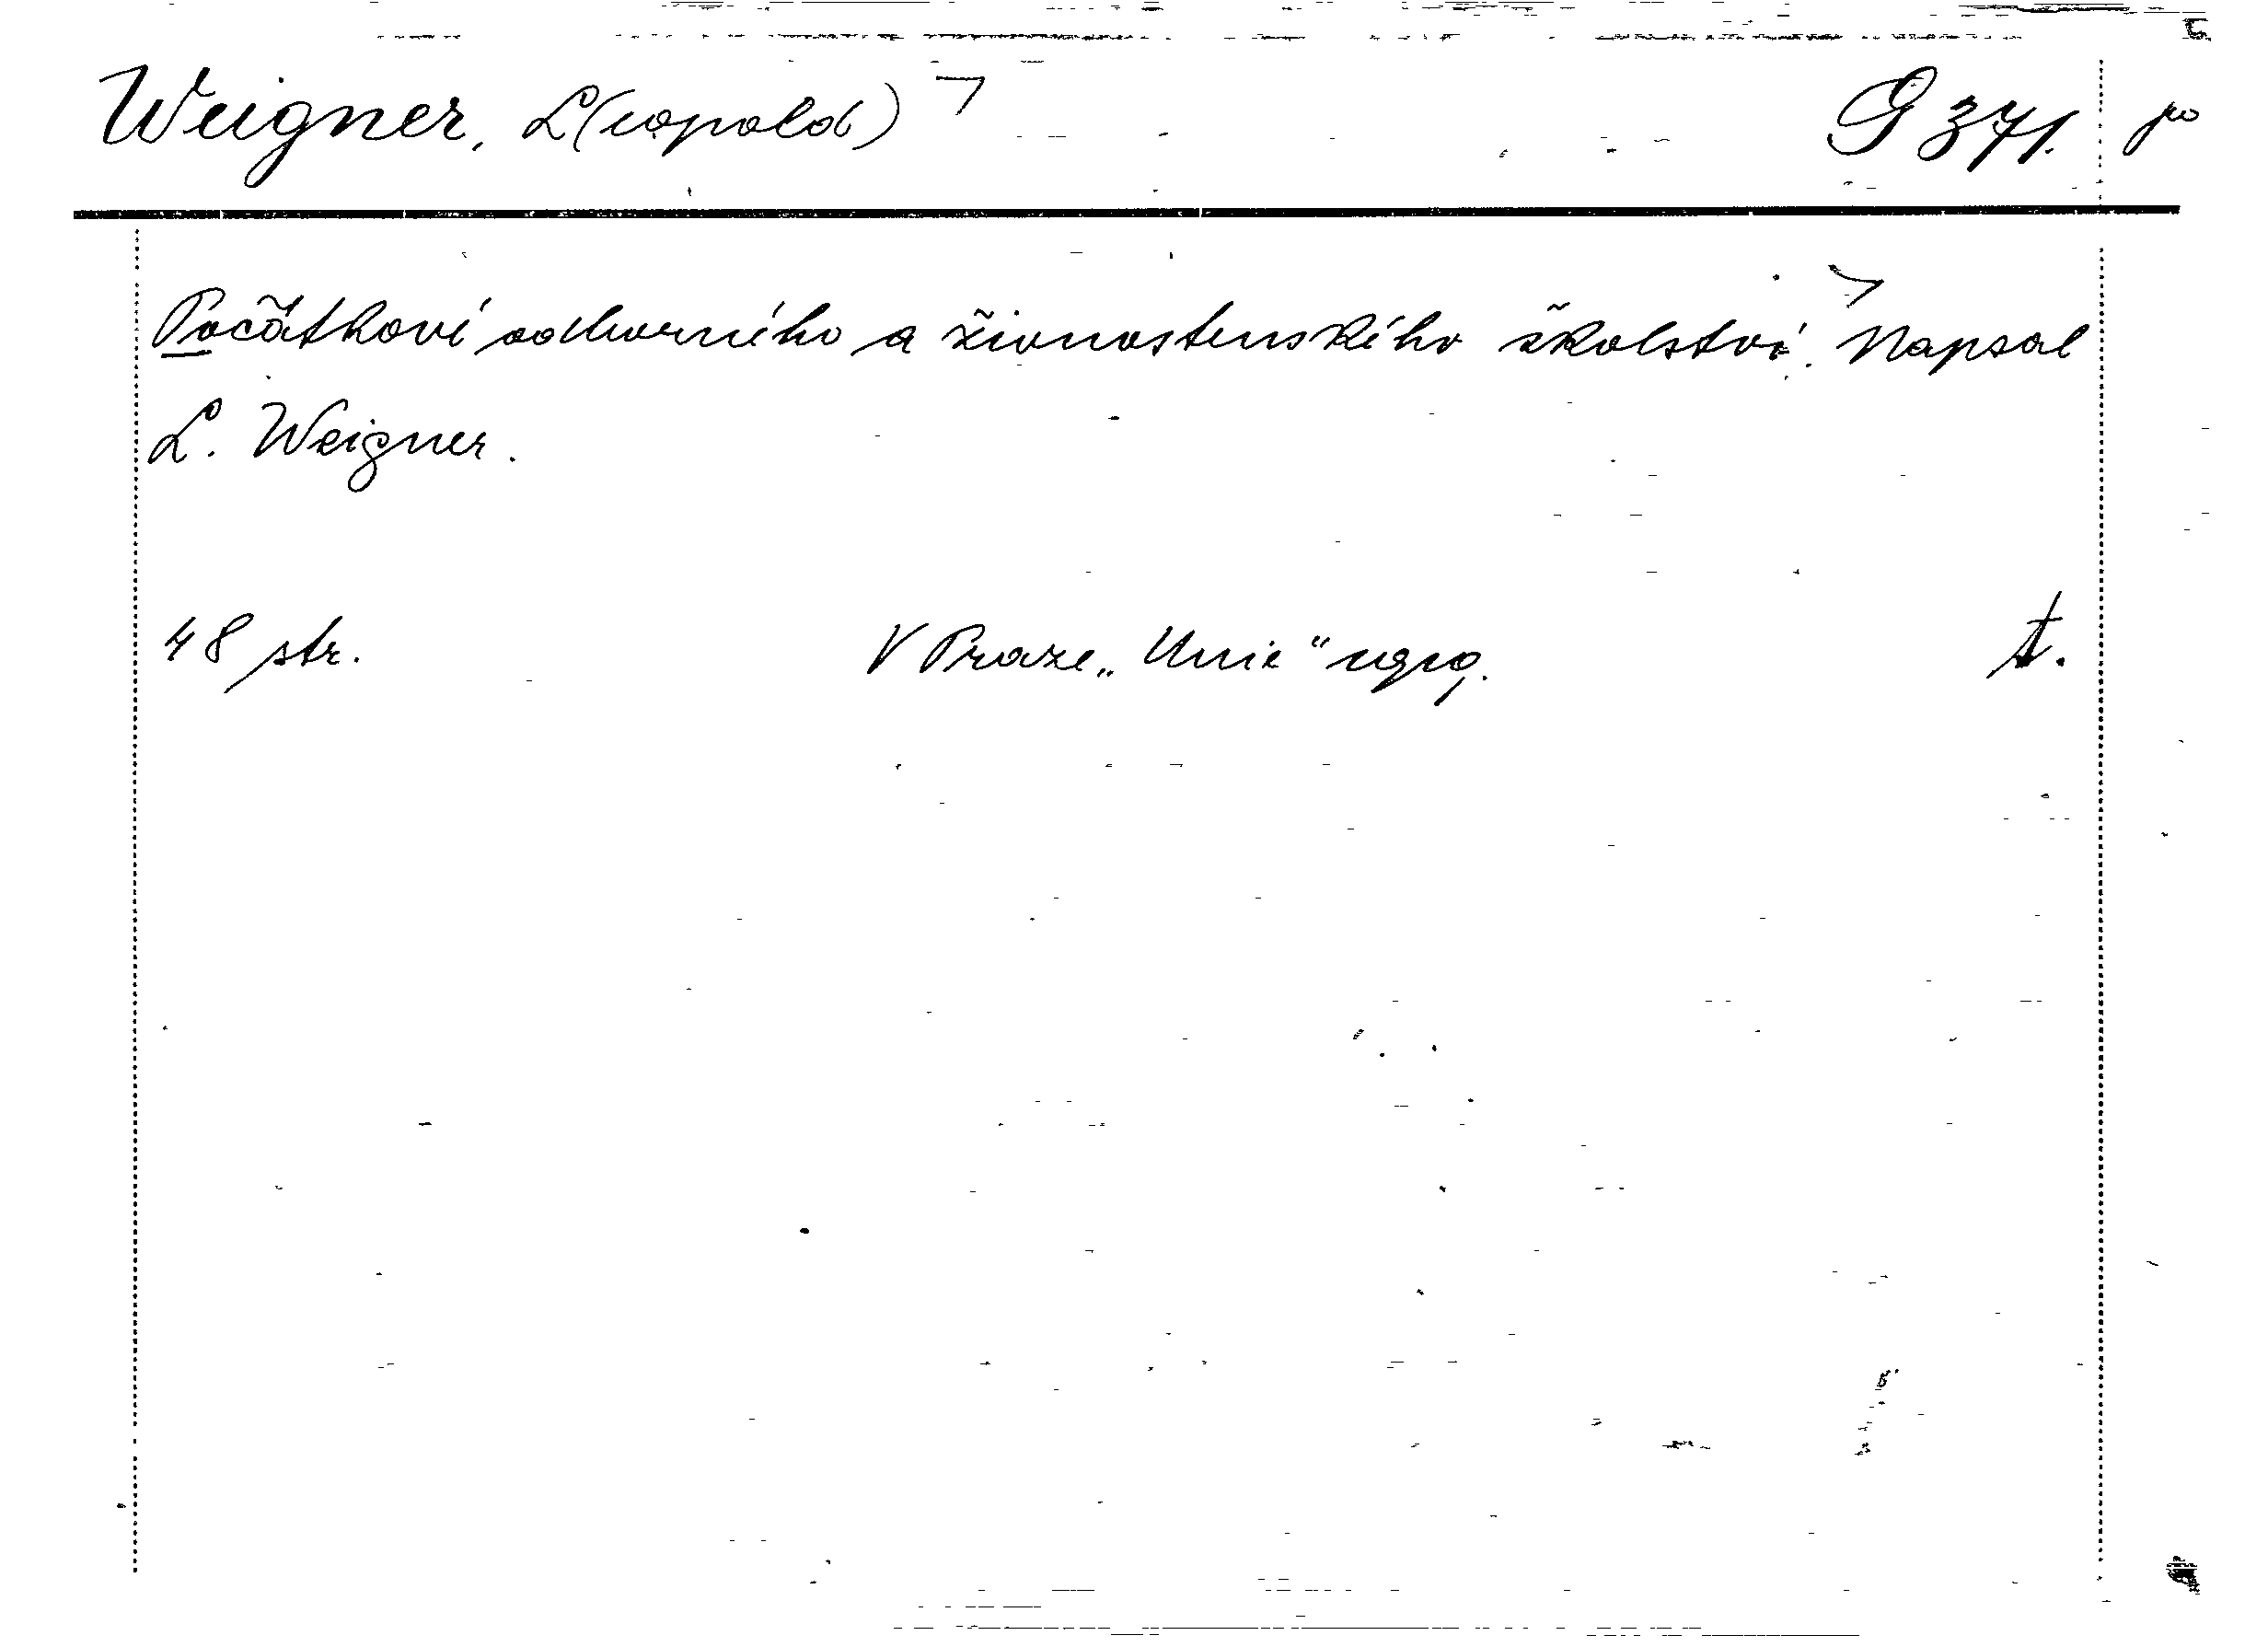 Weigner, L(eopold) G 371. po
Počátkové odborného a živnostenského školství. Napsal
L. Weigner.
48 str. V Praze „Unie" 1919. t.